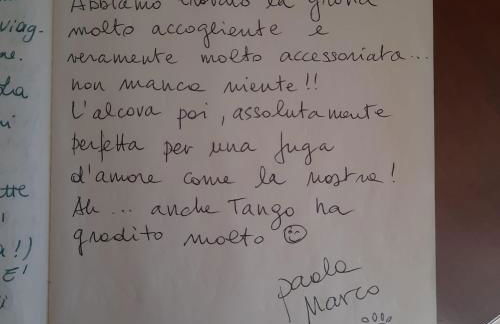 Abbiamo trovato la
molto accogliente e
veramente molto accessoriata...
non manca niente!!
L'alcova poi, assolutamente
perfetta per una fuga
d'amore come la nostra!
Ah... anche Tango ha
gradito molto
Paola
Marco
viag-
ne.
ette
a!)
E'